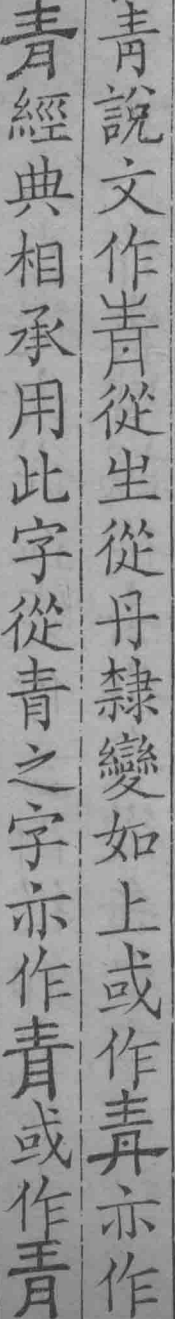 青說文作靑從生從丹隸變如上或作青亦作
青經典相承用此字從青之字亦作青或作青